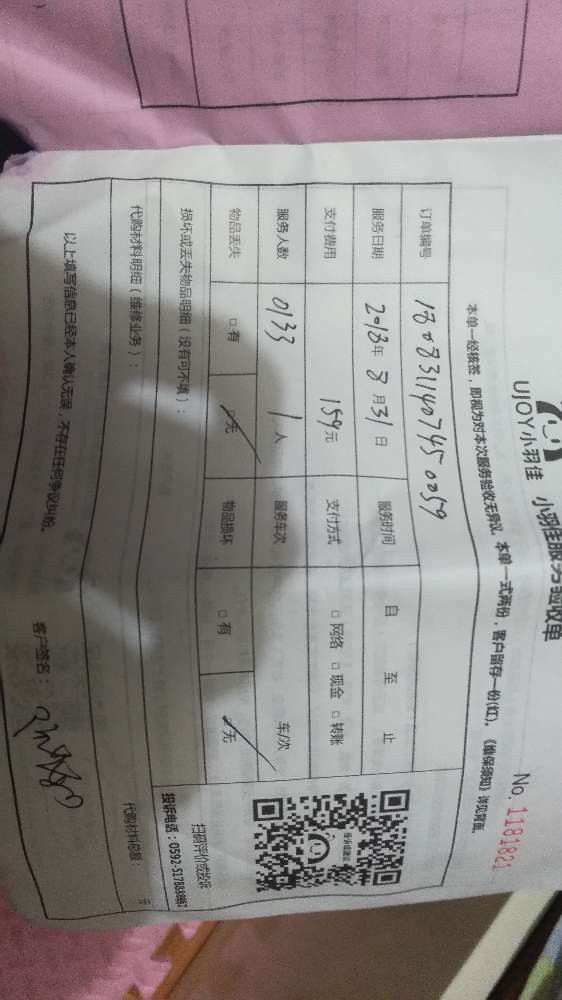 UJOY小羽佳 小羽佳服务验收单
No. 1181821
本单一经核签，即视为对本次服务验收无异议。本单一式两份，客户留存一份(红)。《维保须知》详见背面。
订单编号 1808311407450059
服务日期 2018年 8月31日 服务时间 自 至 止
支付费用 159元 支付方式 □网络 □现金 □转账
服务人数 0133 1人 服务车次 车/次
物品丢失 □有 □无 物品损坏 □有 □无
投诉或建议
扫码评价或投诉
投诉电话：0592-5178888
损坏或丢失物品明细（没有可不填）：
代购材料明细（维修业务）：
代购材料总额： 元
以上填写信息已经本人确认无误，不存在任何争议纠纷。
客户签名：